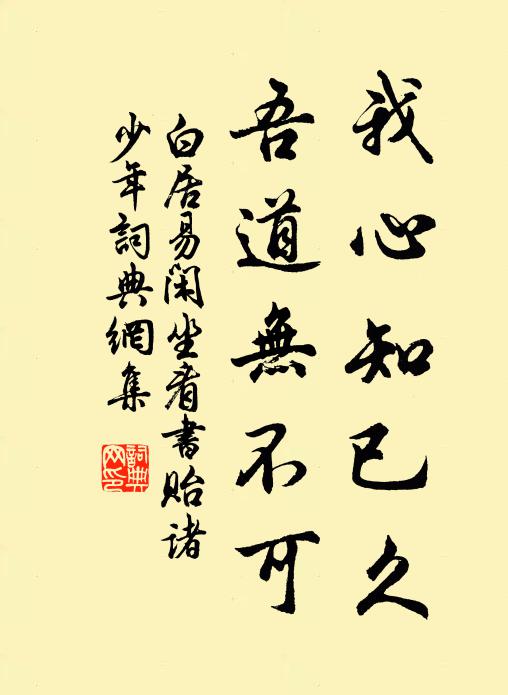 我心知已久
吾道無不可
白居易閑坐看書貽諸
少年詞典網集
詞典
网印